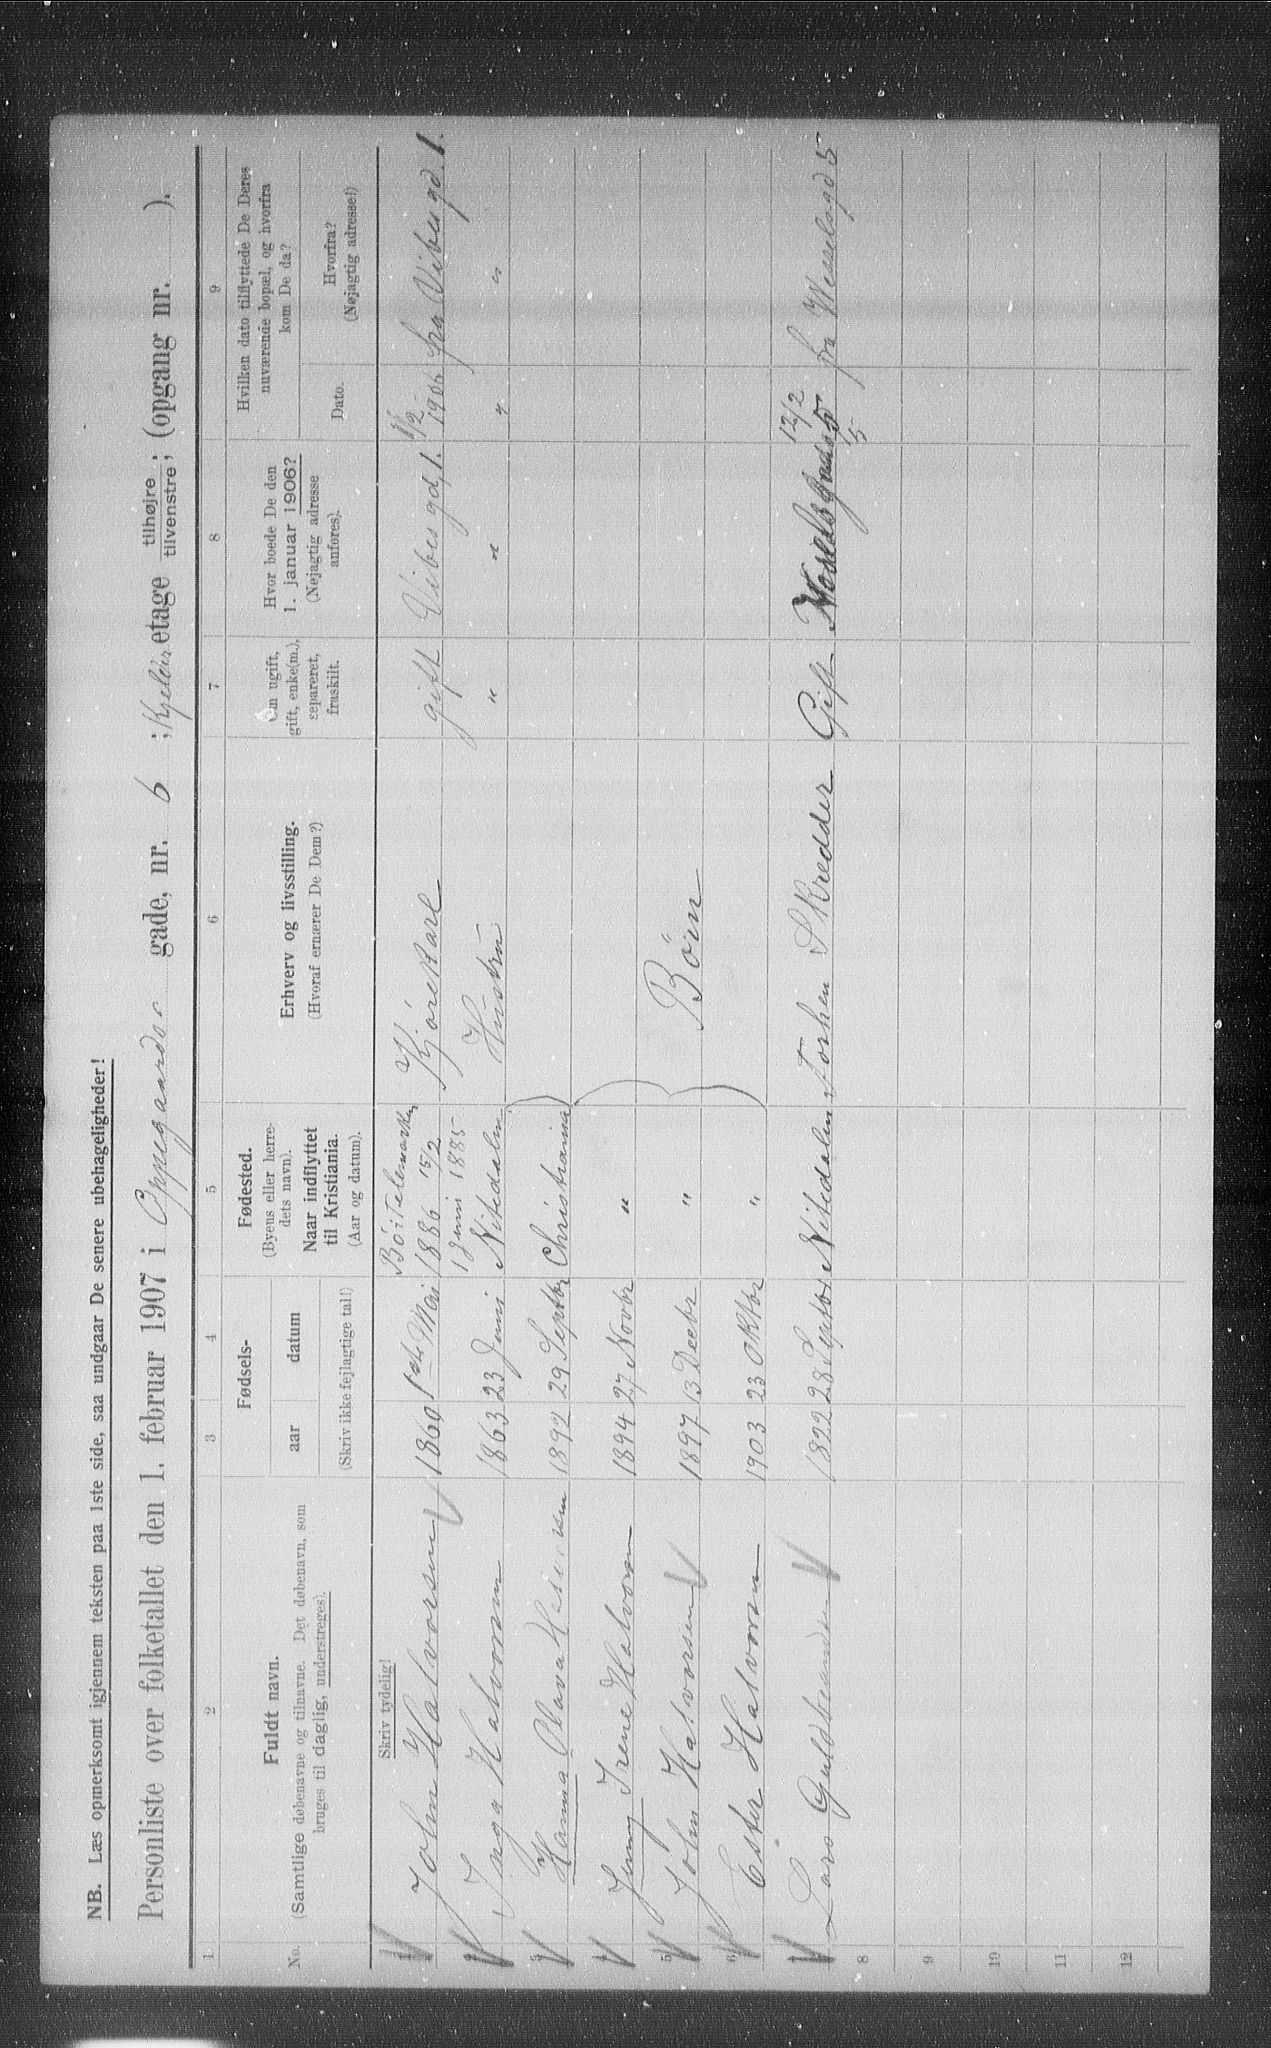 NB. Læs opmerksomt igjennem teksten paa 1ste side, saa undgaar De senere ubehageligheder!
Personliste over folketallet den 1. februar 1907 i Oppegaards gade, nr. 6 ; Kjelder etage tilhøjre tilvenstre ; (opgang nr. ).
1 2 3 4 5 6 7 8 9
No.
Fuldt navn.
(Samtlige døbenavne og tilnavne. Det døbenavn, som
bruges til daglig, understreges).
Fødsels-
aar datum
(Skriv ikke fejlagtige tal!)
Fødested.
(Byens eller herre-
dets navn).
Naar indflyttet
til Kristiania.
(Aar og datum).
Erhverv og livsstilling.
(Hvoraf ernærer De Dem?)
Om ugift,
gift, enke(m.),
separeret,
fraskilt.
Hvor boede De den
1. januar 1906?
(Nøjagtig adresse
anføres).
Hvilken dato tilflyttede De Deres
nuværende bopæl, og hvorfra
kom De da?
Dato.
Hvorfra?
(Nøjagtig adresse!)
Skriv tydelig!
1 John Halvorsen 1860 1ste Mai Bö i Telemarken 1886 15/2 Kjörekarl gift Vibesgd, 1. 1/2 1906 fra Vibesgd. 1.
2 Inga Halvorsen 1863 23 Juni 1 Juni 1885 Nitedalen Hustru " " " "
3 Hanna Olava 1892 29 Septbr Christiania
4 Jenny Irene Halvorsen 1894 27 Novbr "
5 John Halvorsen 1897 13 Decbr " Börn
6 Ester Halvorsen 1903 23 Oktbr "
7 Lars Guldbrandsen 1822 28 Septbr Nitedalen Forhen Skredder Gift 12/2 5 fra Wesselsgd 5
8
9
10
11
12